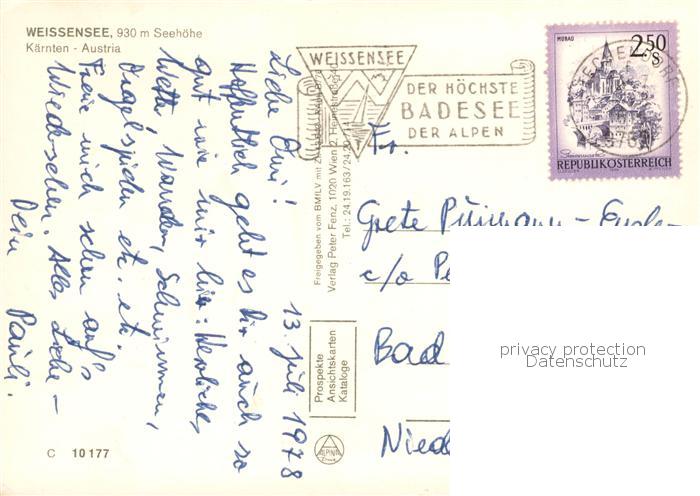 WEISSENSEE, 930 m Seehöhe
Kärnten - Austria
13. Juli 1978
Liebe Omi!
Hoffentlich geht es Dir auch so
gut wie mir hier. Herrliches
Wetter Wandern, Schwimmen,
Orgelspielen etc. etc.
Freue mich schon auf's
Wiedersehen. Alles Liebe –
Dein Pauli.
C 10 177
Freigegeben vom BMfLV mit
Verlag Peter Fenz, 1020 Wien 2,
Tel.: 24.19.163/24.20
Prospekte
Ansichtskarten
Kataloge
ALPINA
WEISSENSEE
DER HÖCHSTE
BADESEE
DER ALPEN
MURAU
2.50
S
REPUBLIK ÖSTERREICH
Fr.
Grete
c/o Pe
Bad
Nied
privacy protection
Datenschutz